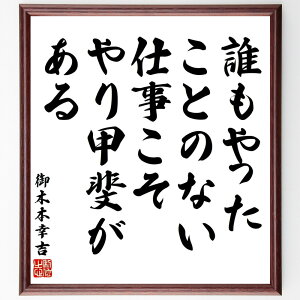 誰もやった
ことのない
仕事こそ
やり甲斐が
ある
御木本幸吉